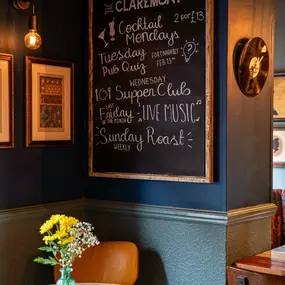 CLAREMONT
Cocktail 2 FOR £13
Mondays
Tuesday FORTNIGHTLY
Pub Quiz FEB 13TH
WEDNESDAY
Supper Club
LAST
Friday LIVE MUSIC
OF THE MONTH
Sunday Roast
WEEKLY